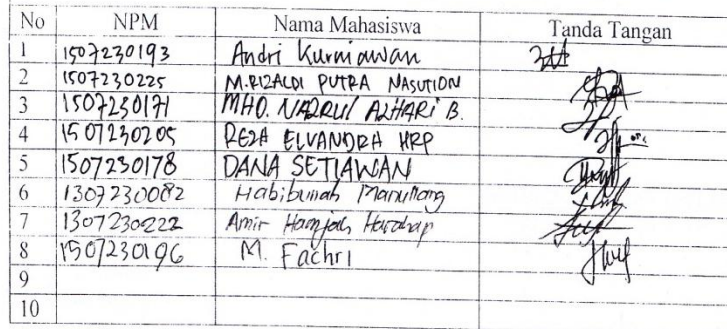 No NPM Nama Mahasiswa Tanda Tangan
1 1507230193 Andri Kurniawan
2 1507230225 M.RIZALDI PUTRA NASUTION
3 1507230171 MHD. NAZRUL AZHARI B.
4 1507230205 REZA ELVANDRA HRP
5 1507230178 DANA SETIAWAN
6 1307230082 Habibullah Manullang
7 1307230222 Amir Hamzah Harahap
8 1507230196 M. Fachri
9
10